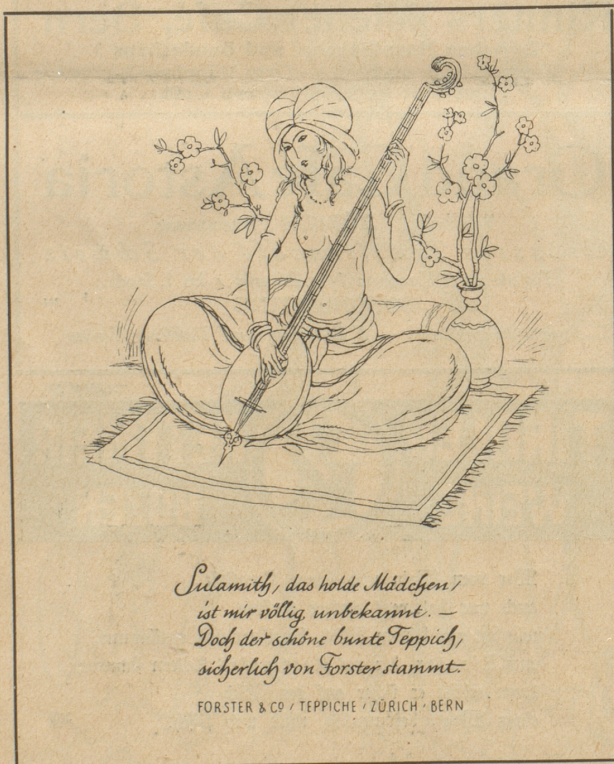 Sulamith, das holde Mädchen,
ist mir völlig unbekannt. —
Doch der schöne bunte Teppich,
sicherlich von Forster stammt.
FORSTER & CO / TEPPICHE / ZÜRICH / BERN